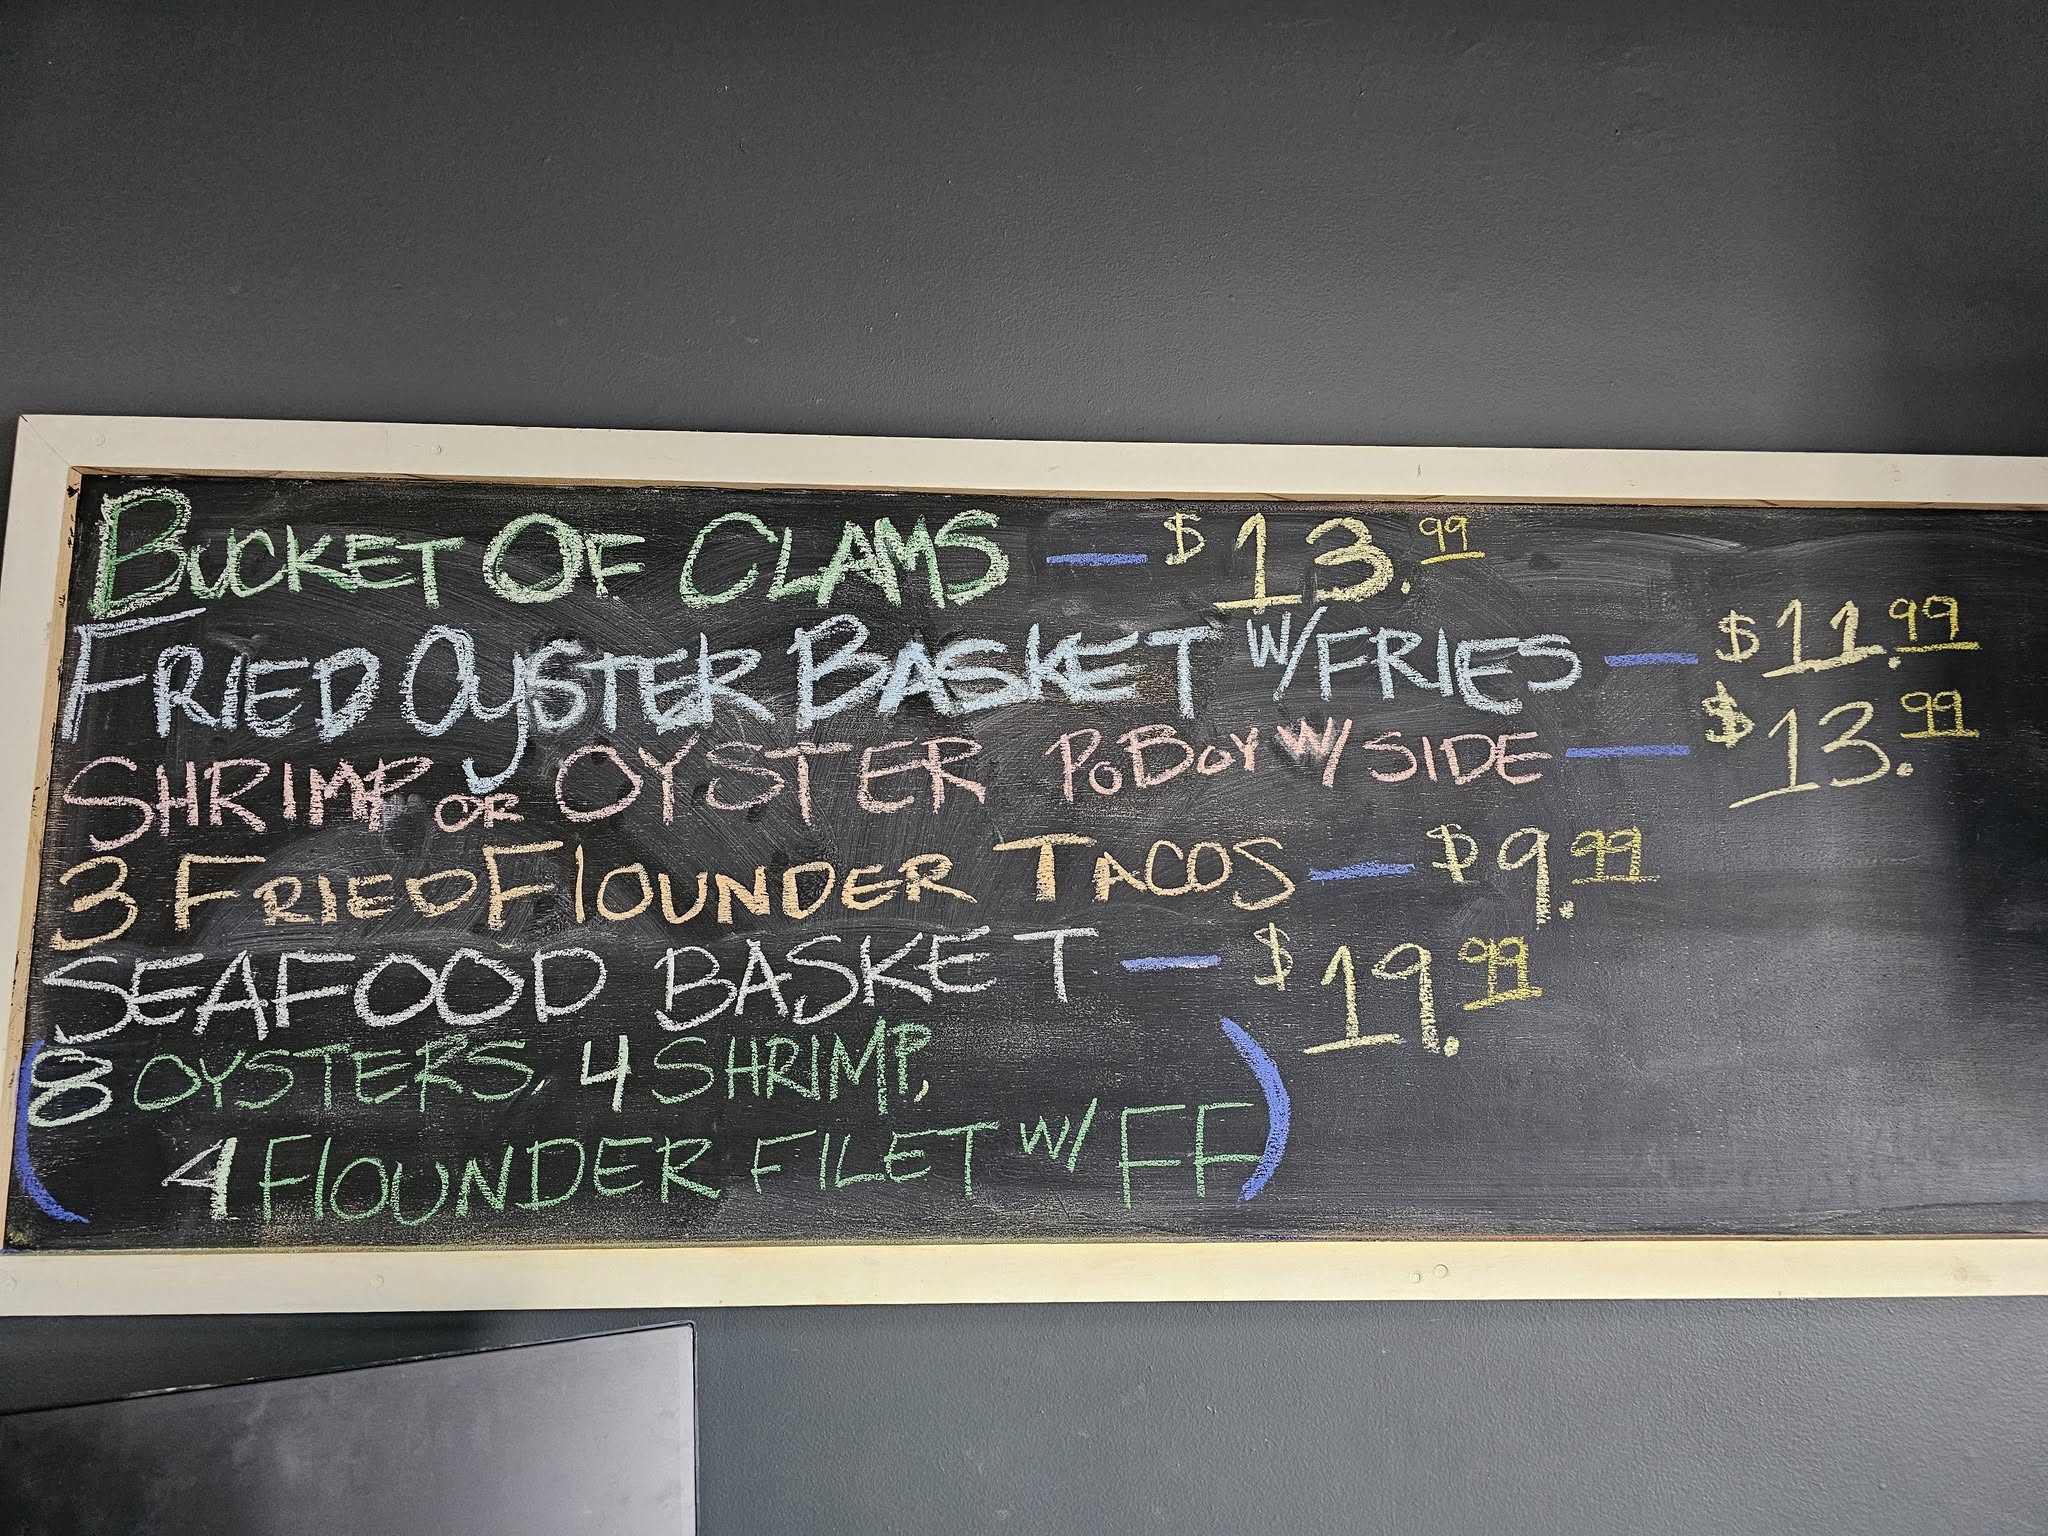 BUCKET OF CLAMS — $13.99
FRIED OYSTER BASKET W/FRIES — $11.99
SHRIMP OR OYSTER POBOY W/ SIDE — $13.99
3 FRIED FlOUNDER TACOS — $9.99
SEAFOOD BASKET — $19.99
(8 OYSTERS, 4 SHRIMP,
4 FlOUNDER FILET W/ FF)